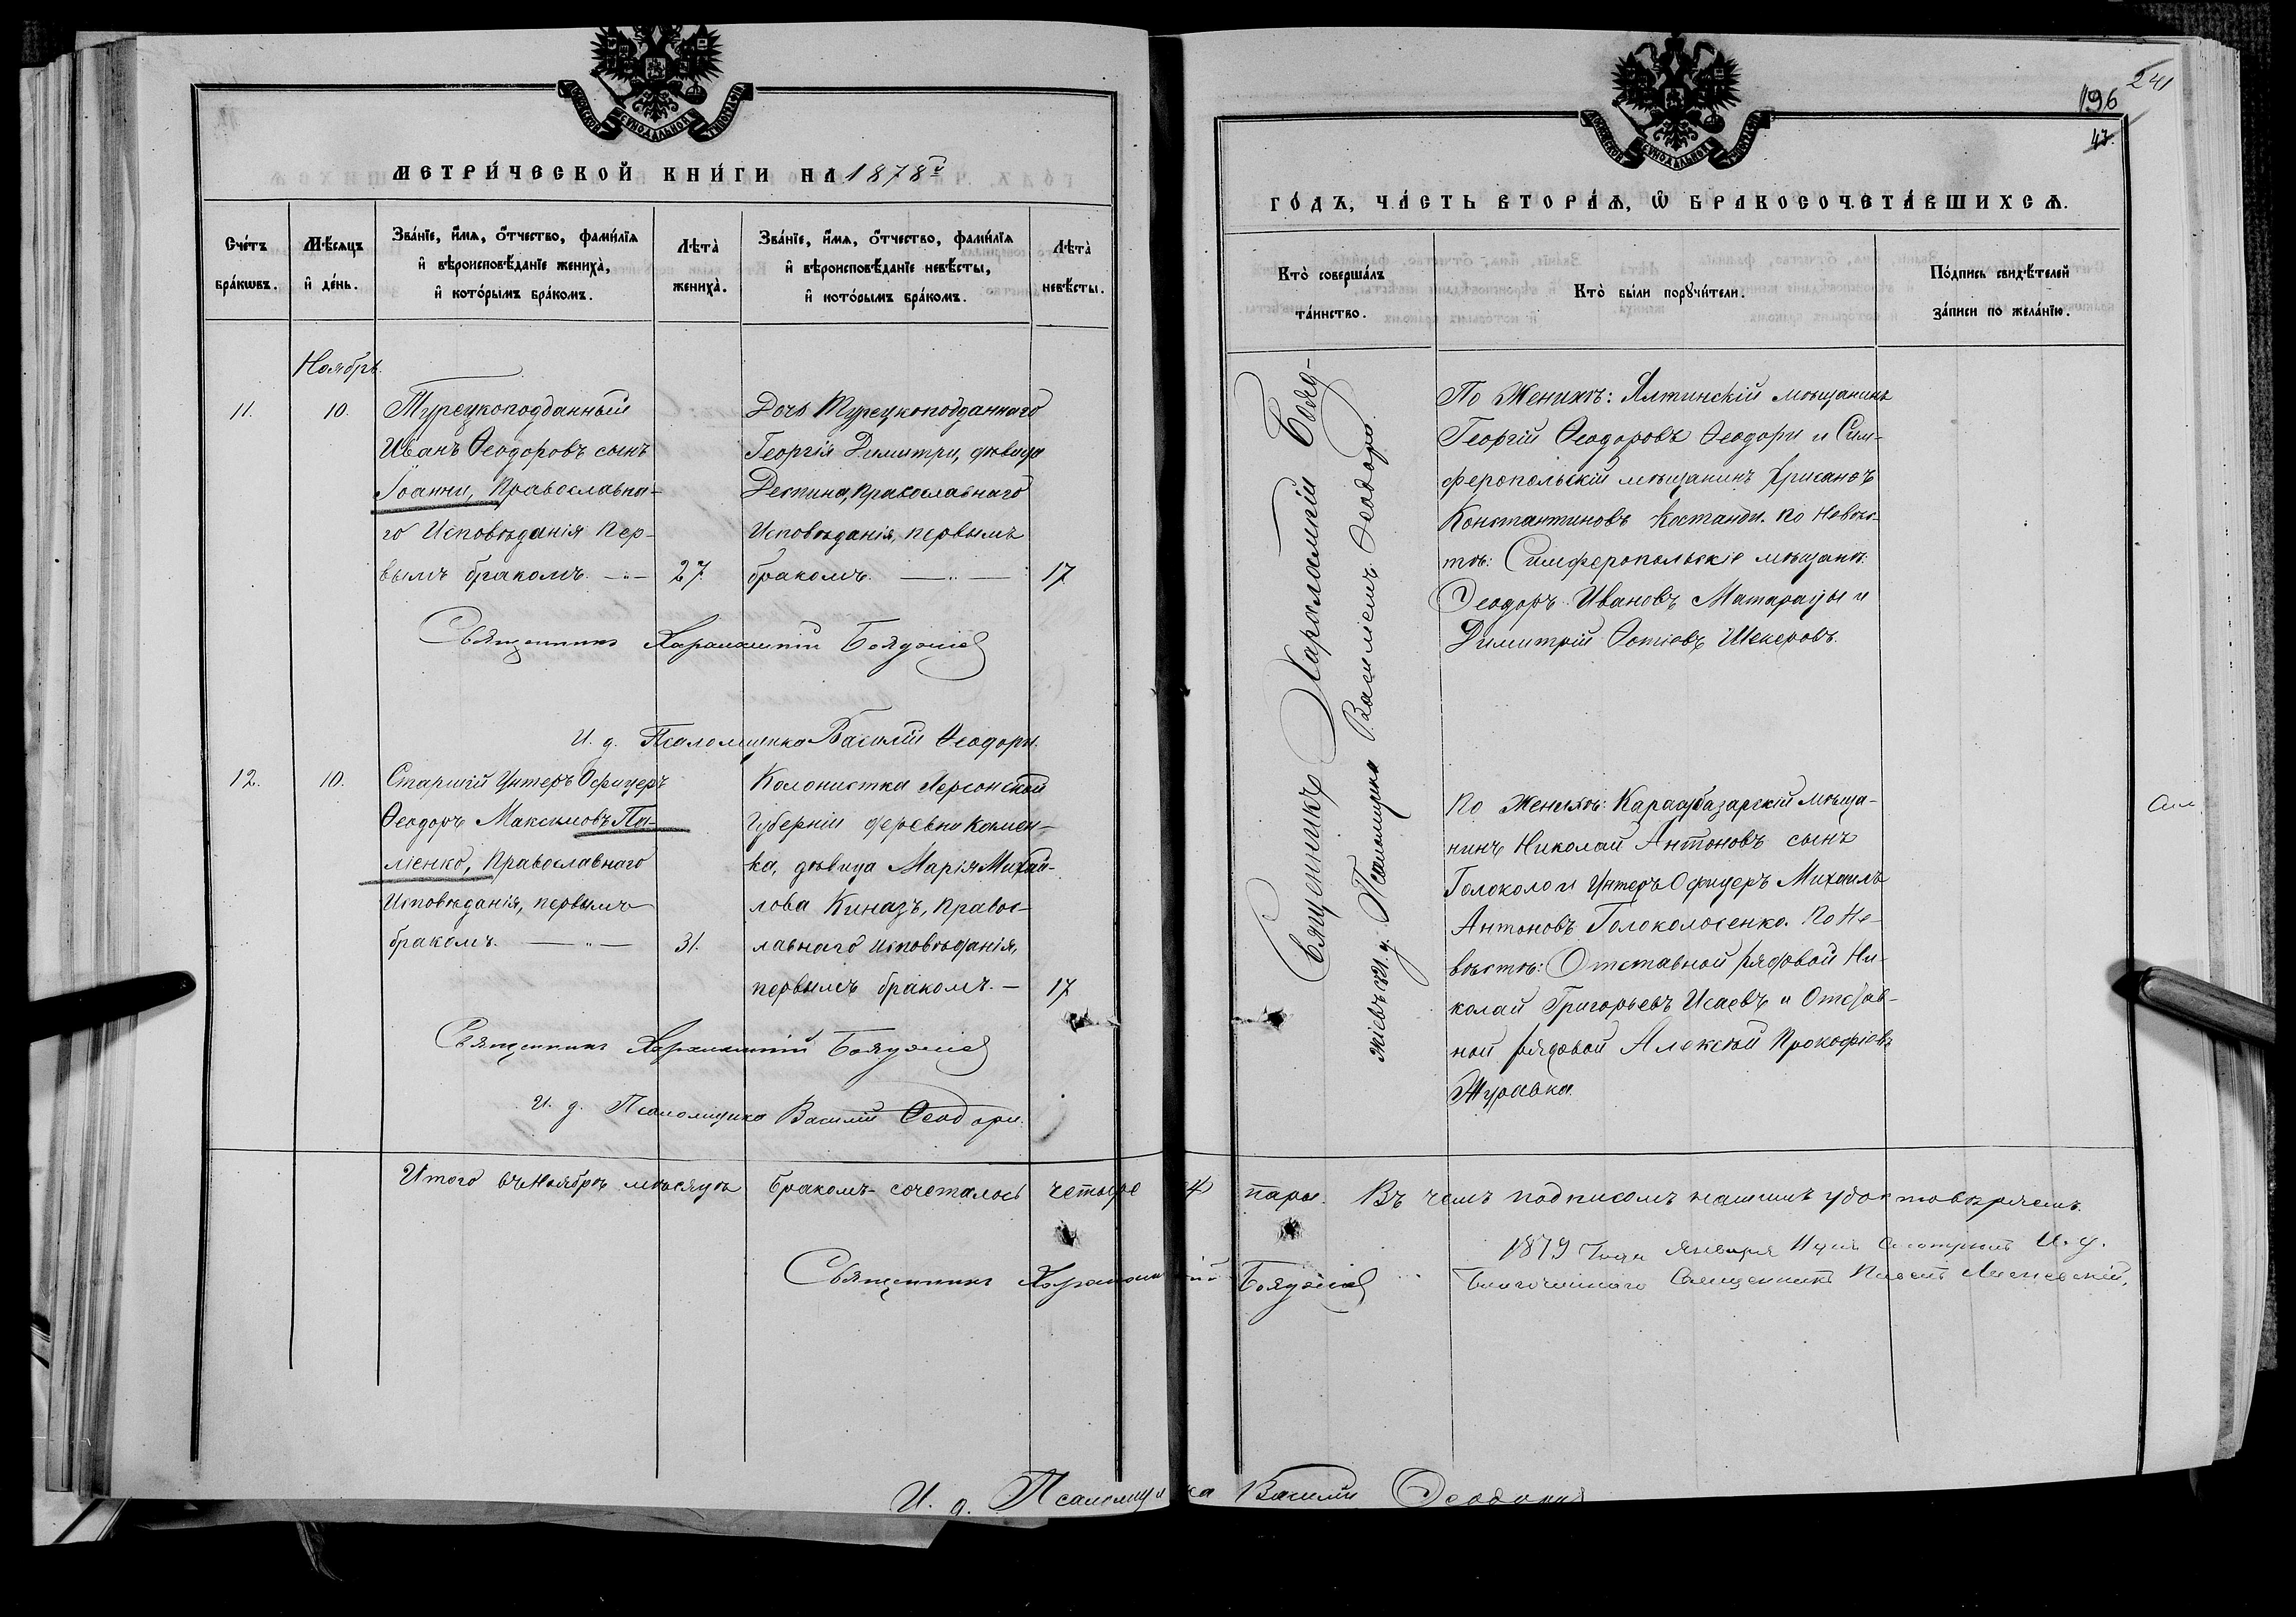 МЕТРИЧЕСКОЙ КНИГИ НА 1878й
Счетъ браковъ.
Мѣсяцъ и день.
Званіе, имя, отчество, фамилія
и вѣроисповѣданіе жениха,
и которымъ бракомъ.
Лѣта жениха.
Званіе, имя, отчество, фамилія
и вѣроисповѣданіе невѣсты,
и которымъ бракомъ.
Лѣта невѣсты.
Ноябрь.
11.
10.
Турецкоподданный
Иванъ Ѳеодоровъ сынъ
Іоанни, Православна-
го Исповѣданія Пер-
вымъ бракомъ.
27
Дочь Турецкоподданнаго
Георгія Димитри, дѣвица
Деспина, Православнаго
Исповѣданія, первымъ
бракомъ.
17
Священникъ Харалампій
И. д. Псаломщика Василій Ѳеодори.
12.
10.
Старшій Унтеръ Офицеръ
Ѳеодоръ Максимовъ Па-
ліенко, Православнаго
Исповѣданія, первымъ
бракомъ.
31.
Колонистка Херсонской
Губерніи деревни Камен-
ка, дѣвица Марія Михай-
лова Киназъ, Правос-
лавнаго исповѣданія,
первымъ бракомъ.
17
Священникъ Харалампій
И. д. Псаломщика Василій Ѳеодори.
Итого въ Ноябрѣ мѣсяцѣ бракомъ сочеталось четыре 4 пары. Въ чемъ подписомъ нашимъ удостовѣряемъ.
Священникъ Харалампій
И. д. Псаломщика Василій Ѳеодори
241
196
47.
ГОДЪ, ЧАСТЬ ВТОРАЯ, Ѡ БРАКОСОЧЕТАВШИХСЯ.
Кто совершалъ
таинство.
Кто были поручители.
Подпись свидѣтелей
записи по желанію.
Священникъ Харалампій Бояд-
жіевъ съ И. д. Псаломщика Василіемъ Ѳеодори.
По Женихѣ: Ялтинскій мѣщанинъ
Георгій Ѳеодоровъ Ѳеодори и Сим-
феропольскій мѣщанинъ Хрисанѳъ
Константиновъ Костанди. По Невѣс-
тѣ: Симферопольскіе мѣщане:
Ѳеодоръ Ивановъ Матараџы и
Димитрій Ѳотіевъ Шекеровъ.
По Женихѣ: Карасубазарскій мѣща-
нинъ Николай Антоновъ сынъ
Голоколо и Унтеръ Офицеръ Михаилъ
Антоновъ Голоколосенко. По Не-
вѣстѣ: Отставной рядовой Ни-
колай Григорьевъ Исаевъ и Отстав-
ной рядовой Алексѣй Прокофіевъ
Журавка.
1879 года Января смотрѣлъ И. д.
Благочиннаго Священникъ